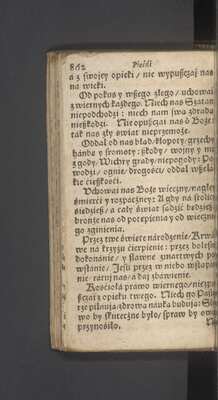 862 Pieśń
a z swojey opieki / nie wypuszczaj nas
na wieki.
Od pokus y wßego złego / uchowaj
z wiernych każdego. Niech nas Szatan
niepodchodzi : niech nam swa zdrada
nießkodzi. Nie opuszczaj nas o Boże
tak nas zły świat nieprzemoże.
Oddal od nas błąd / kłopoty / grzechy
hańbę y sromoty : szkody / wojny y
z gody: Wichry grady / niepogody : Po
wodzi / ognie / drogości / oddal wßel
kie ciężkości.
Uchowaj nas Boże wieczny / nagłey
śmierci y rozpaczney: A gdy na stolicy
siedzieß / a cały świat sądzić będzieß
broń że nas od potępienia y od wieczne
go zginienia.
Przez twe święte národzenie / Krwa
we na krzyżu cierpienie : przez bolesne
dokonanie / y sławne zmartwych po
wstanie / Jesu przez w niebo wstąpie
nie / ratuj nas / a daj zbawienie.
Kościoła prawo wiernego / nie
szczaj z opieku twego. Niech go Paste
rze pilnują / zdrową nauką budują: Sło
wo by skuteczne było / spraw by owoc
przynosiło.